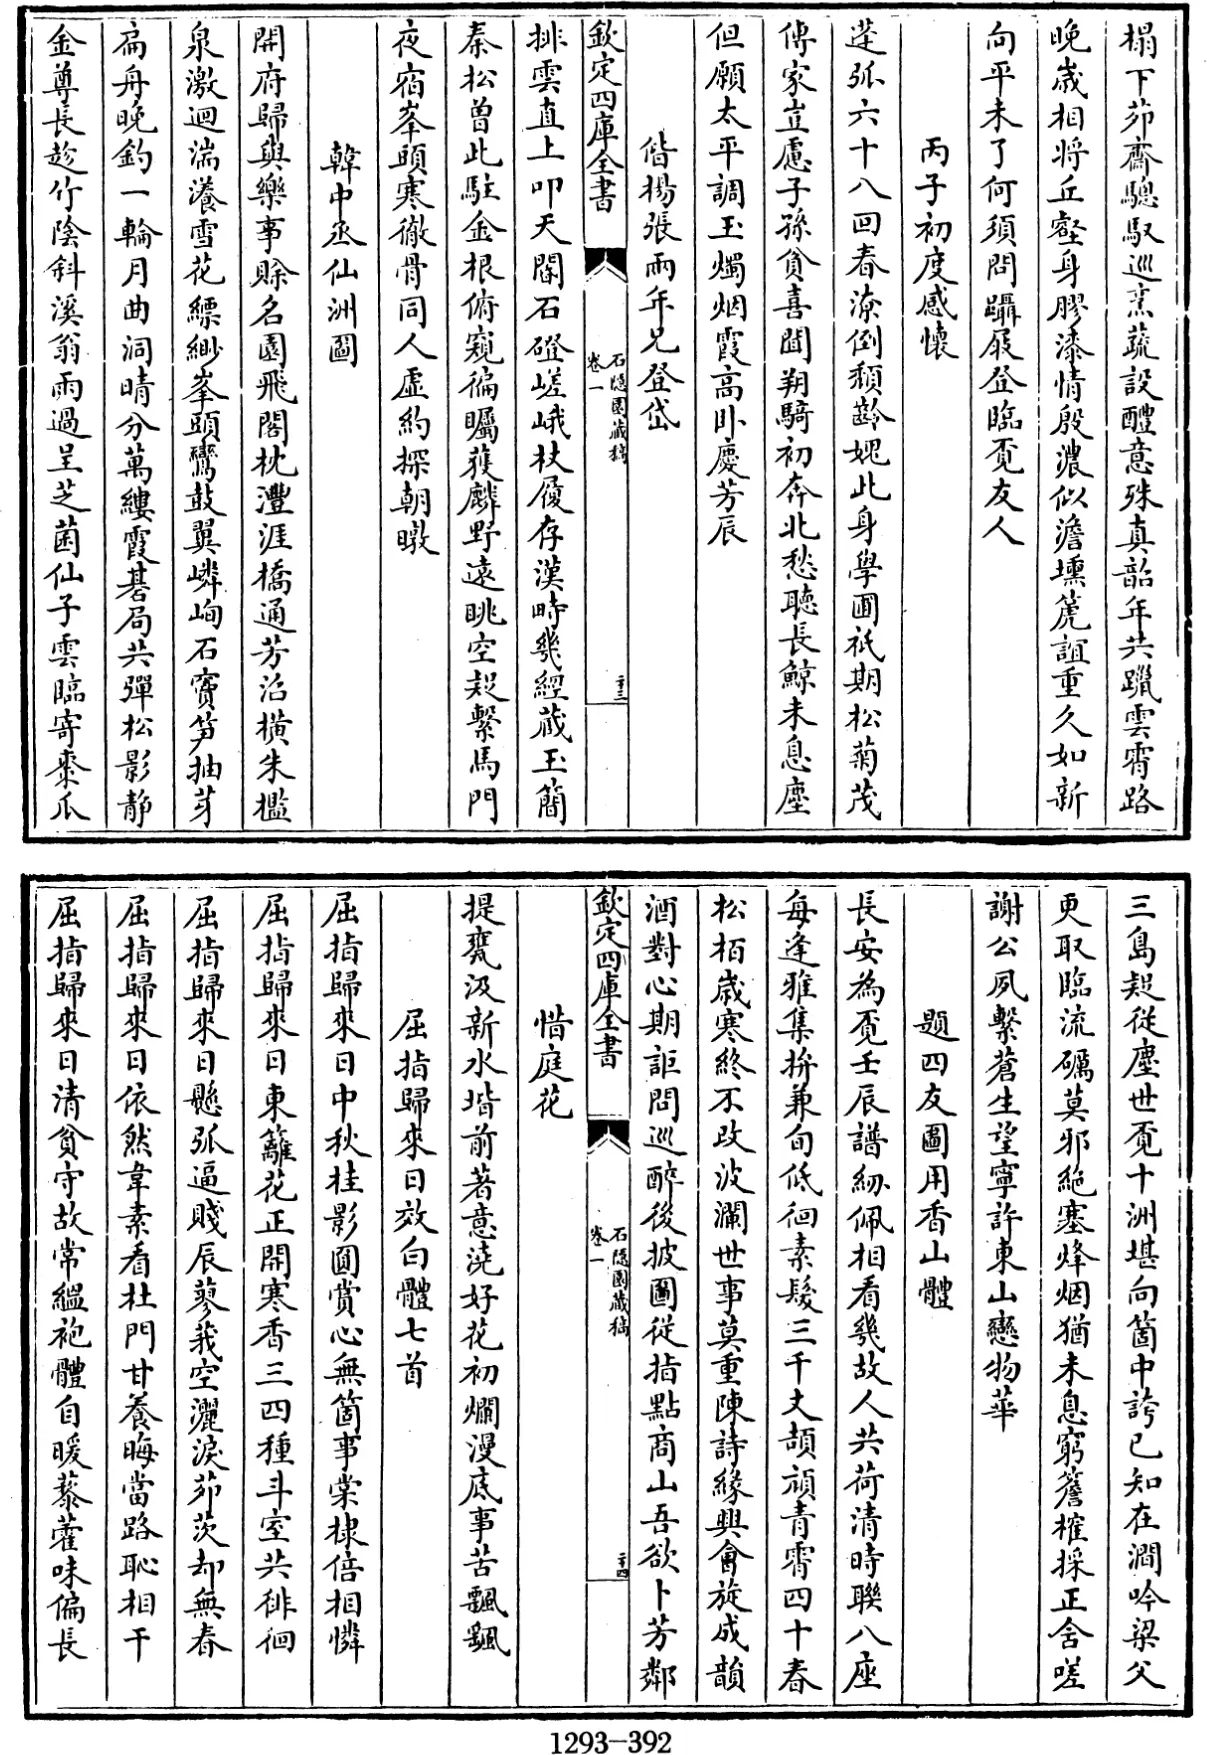 榻下茆齋驄馭巡烹蔬設醴意殊真韶年共躡雲霄路
晚歲相將丘壑身膠漆情殷濃似澹壎箎誼重久如新
向平未了何須問躡屐登臨覔友人
丙子初度感懷
蓬弧六十八回春潦倒頹齡媿此身學圃祇期松菊茂
傳家豈慮子孫貧喜聞朔騎初奔北愁聽長鯨未息塵
但願太平調玉燭烟霞高卧慶芳辰
偕楊張兩年兄登岱
欽定四庫全書
石隱園藏稿
卷一
二十三
排雲直上叩天閽石磴嵯峨杖履存漢畤幾經蔵玉簡
秦松曽此駐金根俯窺徧矚獲麟野遠眺空起繫馬門
夜宿峯頭寒徹骨同人虛約探朝暾
韓中丞仙洲圖
開府歸與樂事賒名園飛閣枕灃涯橋通芳沼橫朱檻
泉激迴湍瀁雪花縹緲峯頭鸞鼓翼嶙峋石竇笋抽芽
扁舟晚釣一輪月曲洞晴分萬縷霞碁局共彈松影静
金尊長趁竹陰斜溪翁雨過呈芝菌仙子雲臨寄棗瓜
三島起從塵世覔十洲堪向箇中誇已知在澗吟梁父
更取臨流礪莫邪絶塞烽烟猶未息窮簷榷採正含嗟
謝公夙繫蒼生望寧許東山戀物華
題四友圖用香山體
長安為覔壬辰譜紉佩相看幾故人共荷清時聯八座
每逢雅集拚兼旬低徊素髪三千丈頡頏青霄四十春
松栢歲寒終不改波瀾世事莫重陳詩緣興會旋成韻
酒對心期詎問巡醉後披圖從指點商山吾欲卜芳鄰
欽定四庫全書
石隱園藏稿
卷一
二十四
惜庭花
提甕汲新水堦前著意澆好花初爛漫底事苦飄颻
屈指歸來日效白體七首
屈指歸來日中秋桂影圓賞心無箇事棠棣倍相憐
屈指歸來日東籬花正開寒香三四種斗室共徘徊
屈指歸來日懸弧逼賤辰蓼莪空灑淚茆茨却無春
屈指歸來日依然韋素看杜門甘養晦當路恥相干
屈指歸來日清貧守故常緼袍體自暖藜藿味偏長
1293-392